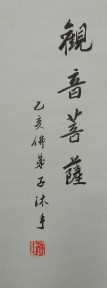 觀音菩薩
乙亥佛弟子沐手